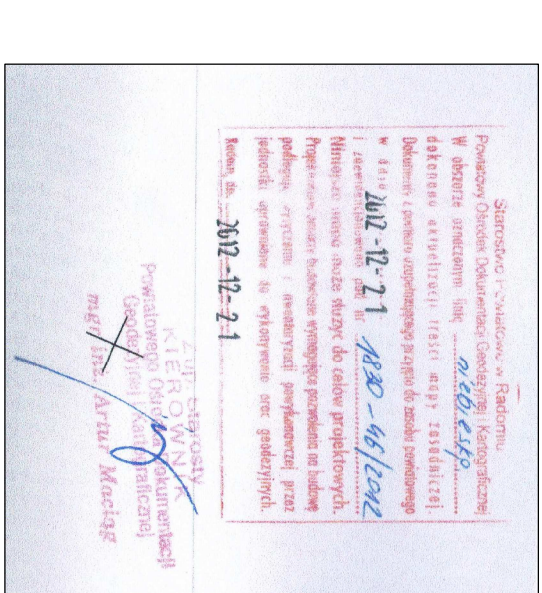 Starostwo Powiatowe w Radomiu
Powiatowy Ośrodek Dokumentacji Geodezyjnej i Kartograficznej
W obszarze oznaczonym linią niebieską
dokonano aktualizacji treści mapy zasadniczej
Dokument z pomiaru uzupełniającego przyjęto do zasobu powiatowego
w dniu 2012-12-21
i zaewidencjonowano pod nr 1830-46/2012
Niniejsza mapa może służyć do celów projektowych.
Projektowane obiekty budowlane wymagające pozwolenia na budowę
podlegają wytyczeniu i inwentaryzacji powykonawczej przez
jednostki uprawnione do wykonywania prac geodezyjnych.
Radom, dn. 2012-12-21
Z up. Starosty
KIEROWNIK
Powiatowego Ośrodka Dokumentacji
Geodezyjnej i Kartograficznej
mgr inż. Artur Maciąg